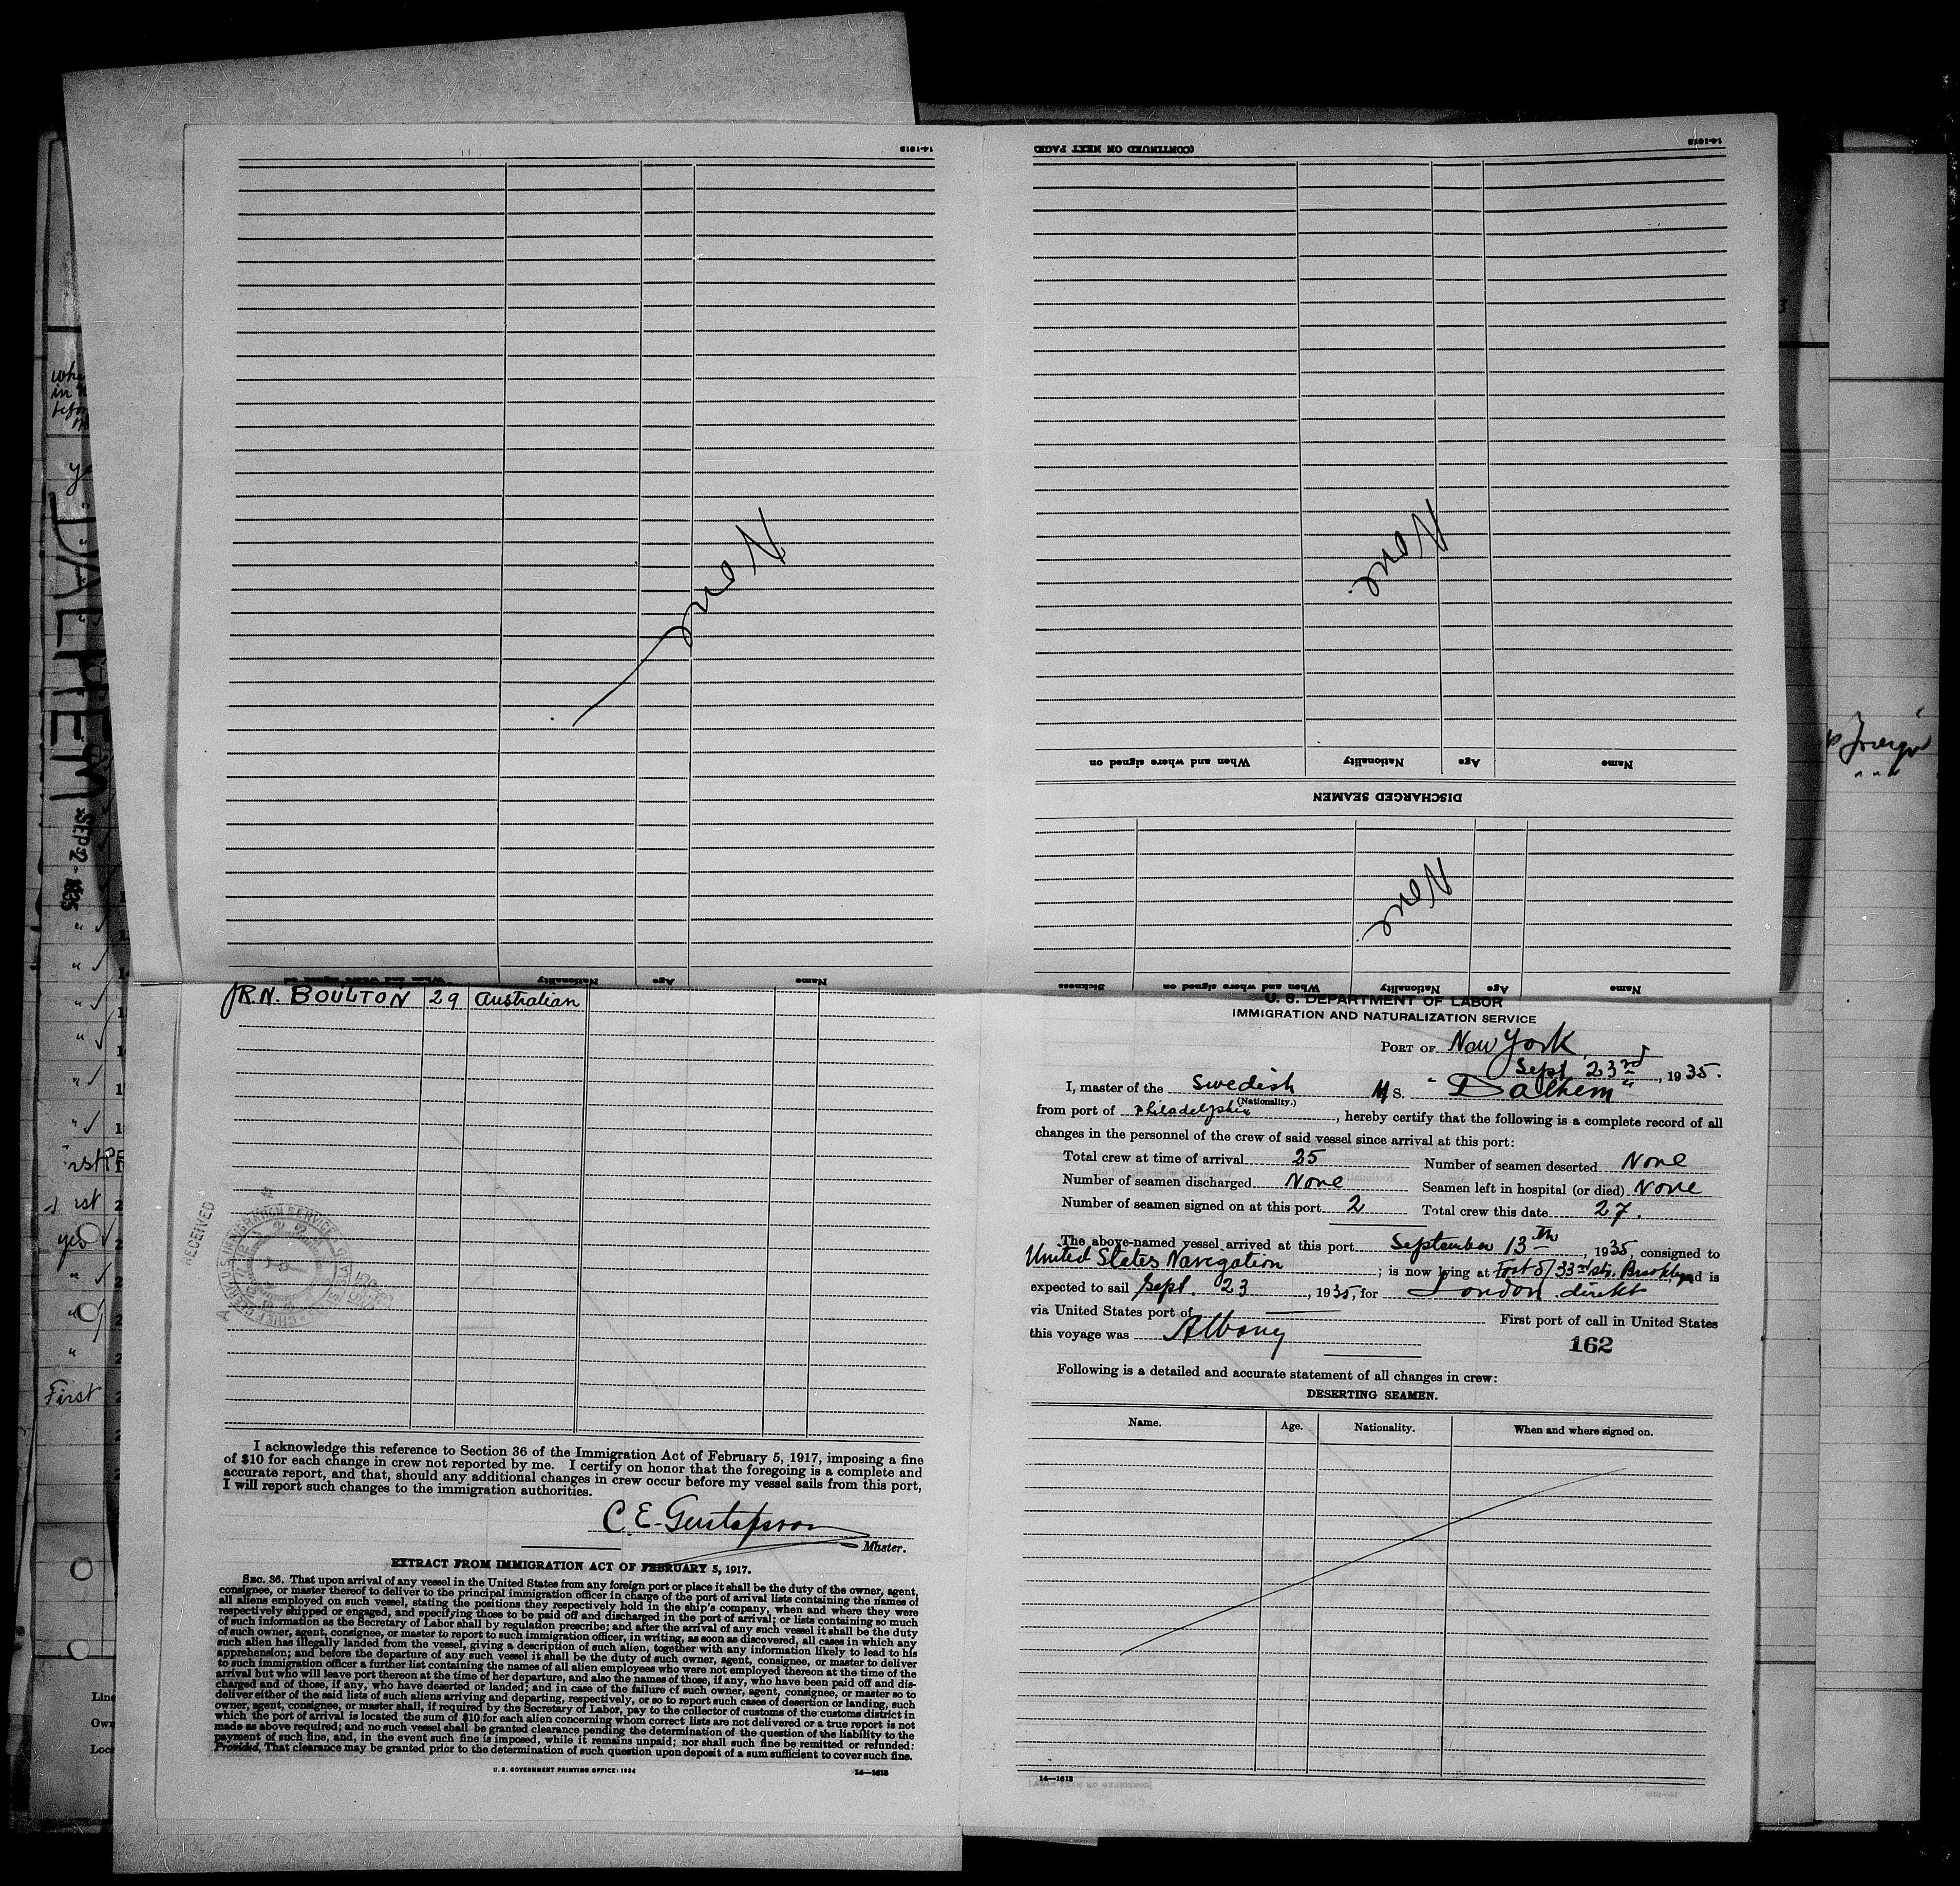 14-1613
(CONTINUED ON NEXT PAGE)
14-1613
None
None
When and where signed on
Nationality
Age
Name
DISCHARGED SEAMEN
None
When and where signed on
Nationality
Age
Name
Sickness
When and where signed on
Nationality
Age
Name
J.R.N. BOULTON 29 Australian
RECEIVED
I acknowledge this reference to Section 36 of the Immigration Act of February 5, 1917, imposing a fine
of $10 for each change in crew not reported by me. I certify on honor that the foregoing is a complete and
accurate report, and that, should any additional changes in crew occur before my vessel sails from this port,
I will report such changes to the immigration authorities.
C. E. Gustafsson
Master.
EXTRACT FROM IMMIGRATION ACT OF FEBRUARY 5, 1917.
SEC. 36. That upon arrival of any vessel in the United States from any foreign port or place it shall be the duty of the owner, agent,
consignee, or master thereof to deliver to the principal immigration officer in charge of the port of arrival lists containing the names of
all aliens employed on such vessel, stating the positions they respectively hold in the ship's company, when and where they were
respectively shipped or engaged, and specifying those to be paid off and discharged in the port of arrival; or lists containing so much
of such information as the Secretary of Labor shall by regulation prescribe; and after the arrival of any such vessel it shall be the duty
of such owner, agent, consignee, or master to report to such immigration officer, in writing, as soon as discovered, all cases in which any
such alien has illegally landed from the vessel, giving a description of such alien, together with any information likely to lead to his
apprehension; and before the departure of any such vessel it shall be the duty of such owner, agent, consignee, or master to deliver
to such immigration officer a further list containing the names of all alien employees who were not employed thereon at the time of the
arrival but who will leave port thereon at the time of her departure, and also the names of those, if any, who have been paid off and dis-
charged and of those, if any, who have deserted or landed; and in case of the failure of such owner, agent, consignee, or master so to
deliver either of the said lists of such aliens arriving and departing, respectively, or so to report such cases of desertion or landing, such
owner, agent, consignee, or master shall, if required by the Secretary of Labor, pay to the collector of customs of the customs district in
which the port of arrival is located the sum of $10 for each alien concerning whom correct lists are not delivered or a true report is not
made as above required; and no such vessel shall be granted clearance pending the determination of the question of the liability to the
payment of such fine, and, in the event such fine is imposed, while it remains unpaid; nor shall such fine be remitted or refunded:
Provided, That clearance may be granted prior to the determination of such question upon deposit of a sum sufficient to cover such fine.
U. S. GOVERNMENT PRINTING OFFICE: 1934
14—1613
U. S. DEPARTMENT OF LABOR
IMMIGRATION AND NATURALIZATION SERVICE
PORT OF New York
Sept 23rd, 1935.
I, master of the Swedish M S. "Dalhem"
(Nationality.)
from port of Philadelphia, hereby certify that the following is a complete record of all
changes in the personnel of the crew of said vessel since arrival at this port:
Total crew at time of arrival 25 Number of seamen deserted None
Number of seamen discharged None Seamen left in hospital (or died) None
Number of seamen signed on at this port 2 Total crew this date 27.
The above-named vessel arrived at this port September 13th, 1935, consigned to
United States Navigation; is now lying at Foot of 33rd str. Brooklyn and is
expected to sail Sept. 23, 1935, for London direkt
via United States port of First port of call in United States
this voyage was Albany
162
Following is a detailed and accurate statement of all changes in crew:
DESERTING SEAMEN.
Name. Age. Nationality. When and where signed on.
14—1613
DALHEM
SEP 2 - 1935
yes
First
Line
Own
Loc